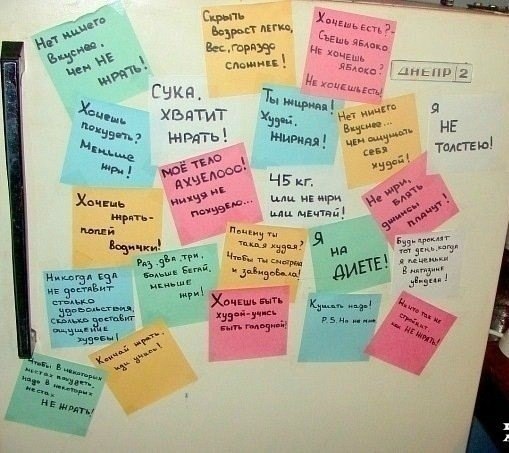 Нет ничего
вкуснее,
чем НЕ
ЖРАТЬ!
Скрыть
возраст легко,
Вес, гораздо
сложнее!
Хочешь есть?-
Съешь яблоко
Не хочешь
яблоко?
Не хочешь есть!
ДНЕПР 2
Хочешь
похудеть?
Меньше
жри!
СУКА,
ХВАТИТ
ЖРАТЬ!
Ты жирная!
Худей,
ЖИРНАЯ!
Нет ничего
Вкуснее...
чем ощущать
себя
худой!
Я
НЕ
ТОЛСТЕЮ!
МОЁ ТЕЛО
АХУЕЛООО!
нихуя не
похудело...
45 кг.
или не жри
или мечтай!
Не жри,
БЛЯТЬ
джинсы
плачут!
Хочешь
жрать-
попей
водички!
Раз, два, три,
больше бегай,
меньше
жри!
Почему ты
такая худая?
Чтобы ты смотрела
и завидовала!
Я
НА
ДИЕТЕ!
Будь проклят
тот день, когда
я печеньки
в магазине
увидела!
Никогда еда
не доставит
столько
удовольствия,
сколько доставит
ощущение
худобы!
Хочешь быть
худой-учись
быть голодной!
Кушать надо!
P.S. Но не мне
Ничто так не
стройнит,
как НЕ ЖРАТЬ!
Кончай жрать,
иди учись!
Чтобы в некоторых
местах похудеть,
надо в некоторых
местах
НЕ ЖРАТЬ!